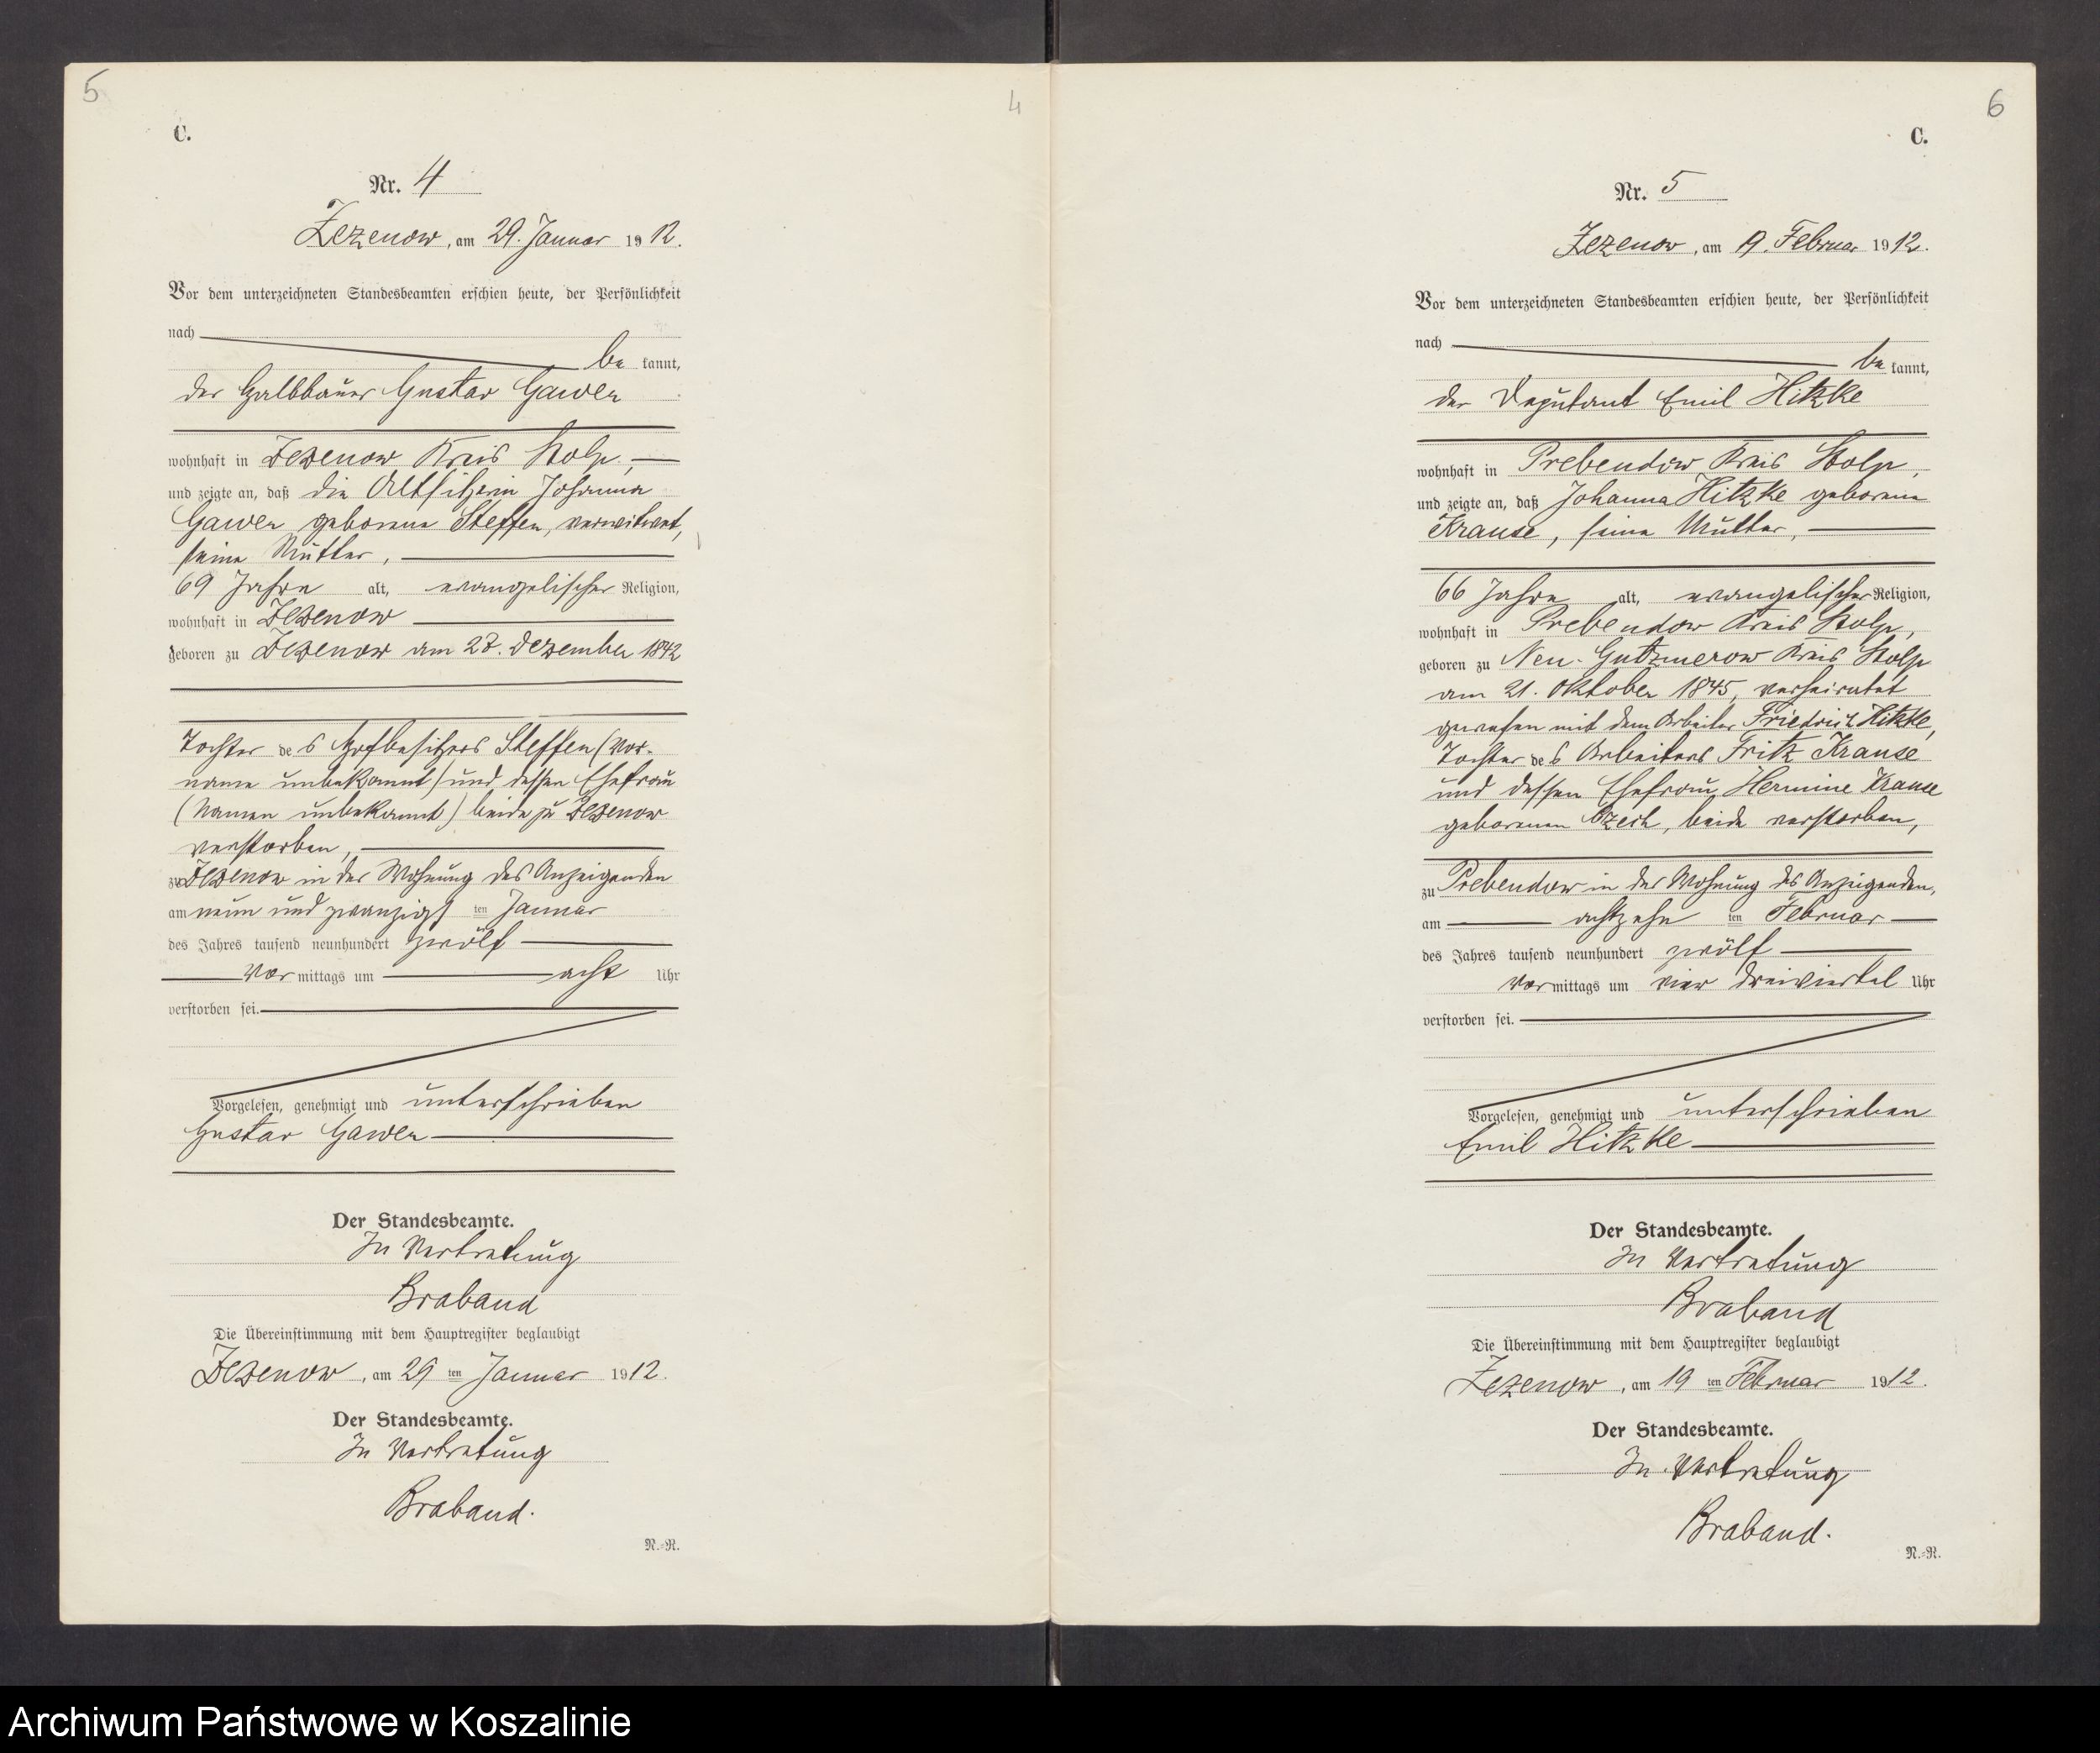 5
4
C.
Nr. 4
Zezenow, am 29. Januar 1912.
Vor dem unterzeichneten Standesbeamten erschien heute, der Persönlichkeit
nach
be kannt,
der Halbbauer Gustav Gawer
wohnhaft in Zezenow Kreis Stolp,
und zeigte an, daß die Altsitzerin Johanna
Gawer geborene Steffen, verwitwet,
seine Mutter,
69 Jahre alt, evangelischer Religion,
wohnhaft in Zezenow
geboren zu Zezenow am 28. Dezember 1842
Tochter des Hofbesitzers Steffen (Vor-
name unbekannt) und dessen Ehefrau
(Namen unbekannt) beide zu Zezenow
verstorben,
zu Zezenow in der Wohnung des Anzeigenden
am neun und zwanzigsten Januar
des Jahres tausend neunhundert zwölf
Vor mittags um acht Uhr
verstorben sei.
Vorgelesen, genehmigt und unterschrieben
Gustav Gawer
Der Standesbeamte.
In Vertretung
Braband
Die Übereinstimmung mit dem Hauptregister beglaubigt
Zezenow, am 29 ten Januar 1912.
Der Standesbeamte.
In Vertretung
Braband.
N.-R.
6
C.
Nr. 5
Zezenow, am 19. Februar 1912.
Vor dem unterzeichneten Standesbeamten erschien heute, der Persönlichkeit
nach
be kannt,
der Deputant Emil Hitzke
wohnhaft in Prebendow Kreis Stolp,
und zeigte an, daß Johanna Hitzke geborene
Krause, seine Mutter,
66 Jahre alt, evangelischer Religion,
wohnhaft in Prebendow Kreis Stolp,
geboren zu Neu-Gutzmerow Kreis Stolp
am 21. Oktober 1845, verheiratet
gewesen mit dem Arbeiter Friedrich Hitzke,
Tochter des Arbeiters Fritz Krause
und dessen Ehefrau Hermine Krause
geborenen Czech, beide verstorben,
zu Prebendow in der Wohnung des Anzeigenden,
am achtzehn ten Februar
des Jahres tausend neunhundert zwölf
vor mittags um vier dreiviertel Uhr
verstorben sei.
Vorgelesen, genehmigt und unterschrieben
Emil Hitzke
Der Standesbeamte.
In Vertretung
Braband
Die Übereinstimmung mit dem Hauptregister beglaubigt
Zezenow, am 19 ten Februar 1912.
Der Standesbeamte.
In Vertretung
Braband.
N.-R.
Archiwum Państwowe w Koszalinie